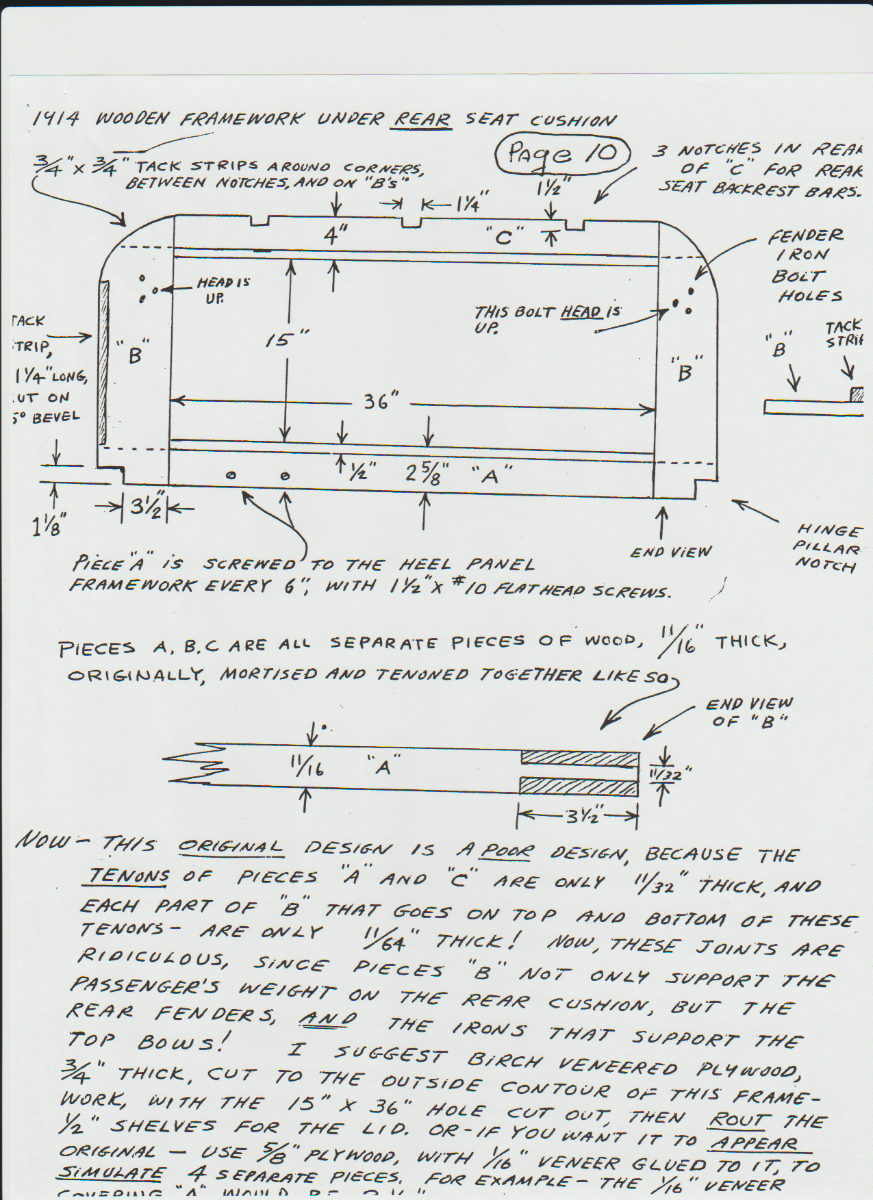 1914 WOODEN FRAMEWORK UNDER REAR SEAT CUSHION
Page 10
3/4" X 3/4" TACK STRIPS AROUND CORNERS,
BETWEEN NOTCHES, AND ON "B's"
3 NOTCHES IN REAR
OF "C" FOR REAR
SEAT BACKREST BARS.
1 1/4"
1 1/2"
4"
"C"
FENDER
IRON
BOLT
HOLES
HEAD IS
UP.
THIS BOLT HEAD IS
UP.
15"
TACK
STRIP,
1 1/4" LONG,
CUT ON
5° BEVEL
"B"
"B"
"B"
TACK
STRIP
36"
1/2"
2 5/8"
"A"
3 1/2"
1 1/8"
END VIEW
HINGE
PILLAR
NOTCH
PIECE "A" IS SCREWED TO THE HEEL PANEL
FRAMEWORK EVERY 6", WITH 1 1/2" X #10 FLATHEAD SCREWS.
PIECES A, B, C ARE ALL SEPARATE PIECES OF WOOD, 11/16" THICK,
ORIGINALLY, MORTISED AND TENONED TOGETHER LIKE SO
END VIEW
OF "B"
11/16
"A"
11/32"
3 1/2"
NOW - THIS ORIGINAL DESIGN IS A POOR DESIGN, BECAUSE THE
TENONS OF PIECES "A" AND "C" ARE ONLY 11/32" THICK, AND
EACH PART OF "B" THAT GOES ON TOP AND BOTTOM OF THESE
TENONS - ARE ONLY 11/64" THICK! NOW, THESE JOINTS ARE
RIDICULOUS, SINCE PIECES "B" NOT ONLY SUPPORT THE
PASSENGER'S WEIGHT ON THE REAR CUSHION, BUT THE
REAR FENDERS, AND THE IRONS THAT SUPPORT THE
TOP BOWS! I SUGGEST BIRCH VENEERED PLYWOOD,
3/4" THICK, CUT TO THE OUTSIDE CONTOUR OF THIS FRAME-
WORK, WITH THE 15" X 36" HOLE CUT OUT, THEN ROUT THE
1/2" SHELVES FOR THE LID. OR-IF YOU WANT IT TO APPEAR
ORIGINAL - USE 5/8" PLYWOOD, WITH 1/16" VENEER GLUED TO IT, TO
SIMULATE 4 SEPARATE PIECES. FOR EXAMPLE - THE 1/16" VENEER
COVERING "A" WOULD BE